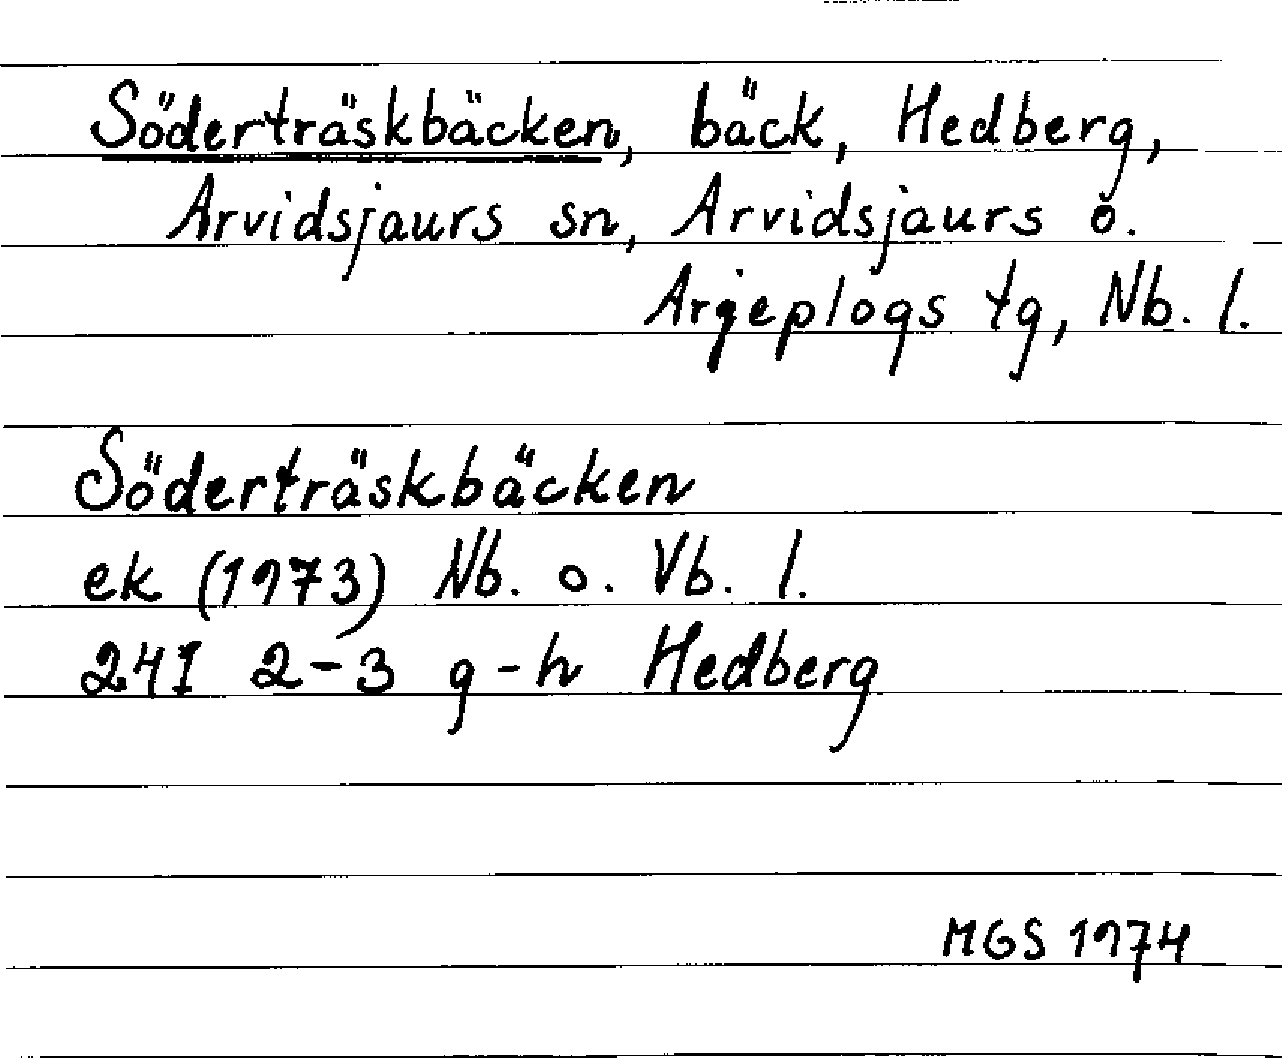 Söderträskbäcken, bäck, Hedberg,
Arvidsjaurs sn, Arvidsjaurs o.
Arjeplogs tg, Nb. l.
Söderträskbäcken
ek (1973) Nb. o. Vb. l.
24I 2-3 g-h Hedberg
MGS 1974